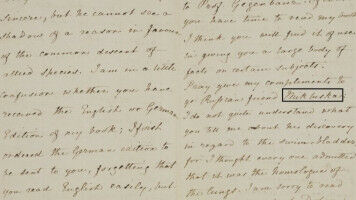 sincere, but he cannot see a
shadow of a reason in favour
of the common descent of
allied species. I am in a little
confusion whether you have
received the English or German
Edition of my book; I first
ordered the German edition to
be sent to you, forgetting that
you read English easily, but
to Prof. Gegenbaur. If
you have time to read my book
I think you will find it of use
in giving you a large body of
facts on certain subjects.
Pray give my compliments to
yr Russian friend
I do not quite understand what
you tell me about his discovery
in regard to the swim-bladder
for I thought every one admitted
that it was the homologue of
the lungs. I am sorry to read